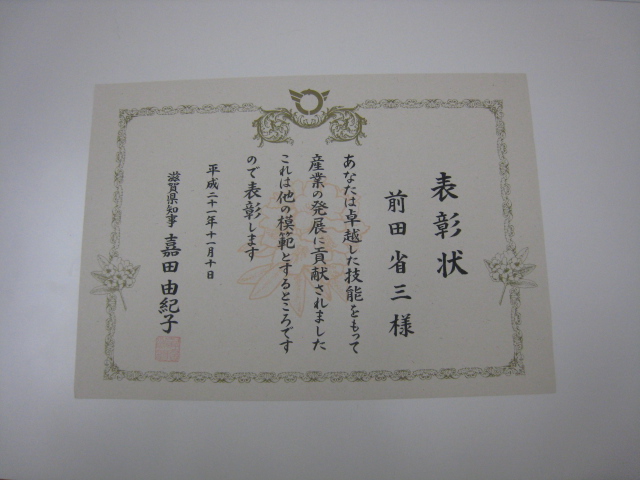 表彰状
前田省三様
あなたは卓越した技能をもって
産業の発展に貢献されました
これは他の模範とするところです
ので表彰します
平成二十一年十一月十日
滋賀県知事 嘉田由紀子